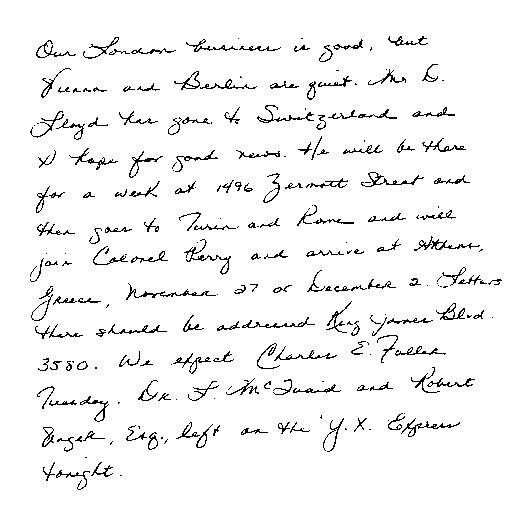 Our London business is good, but
Vienna and Berlin are quiet. Mr. D.
Lloyd has gone to Switzerland and
I hope for good news. He will be there
for a week at 1496 Zermott Street and
then goes to Turin and Rome and will
join Colonel Perry and arrive at Athens,
Greece, November 27 or December 2. Letters
there should be addressed King James Blvd.
3580. We expect Charles E. Fuller
Tuesday. Dr. L. McQuaid and Robert
Unger, Esq., left on the 'Y.X. Express
tonight.